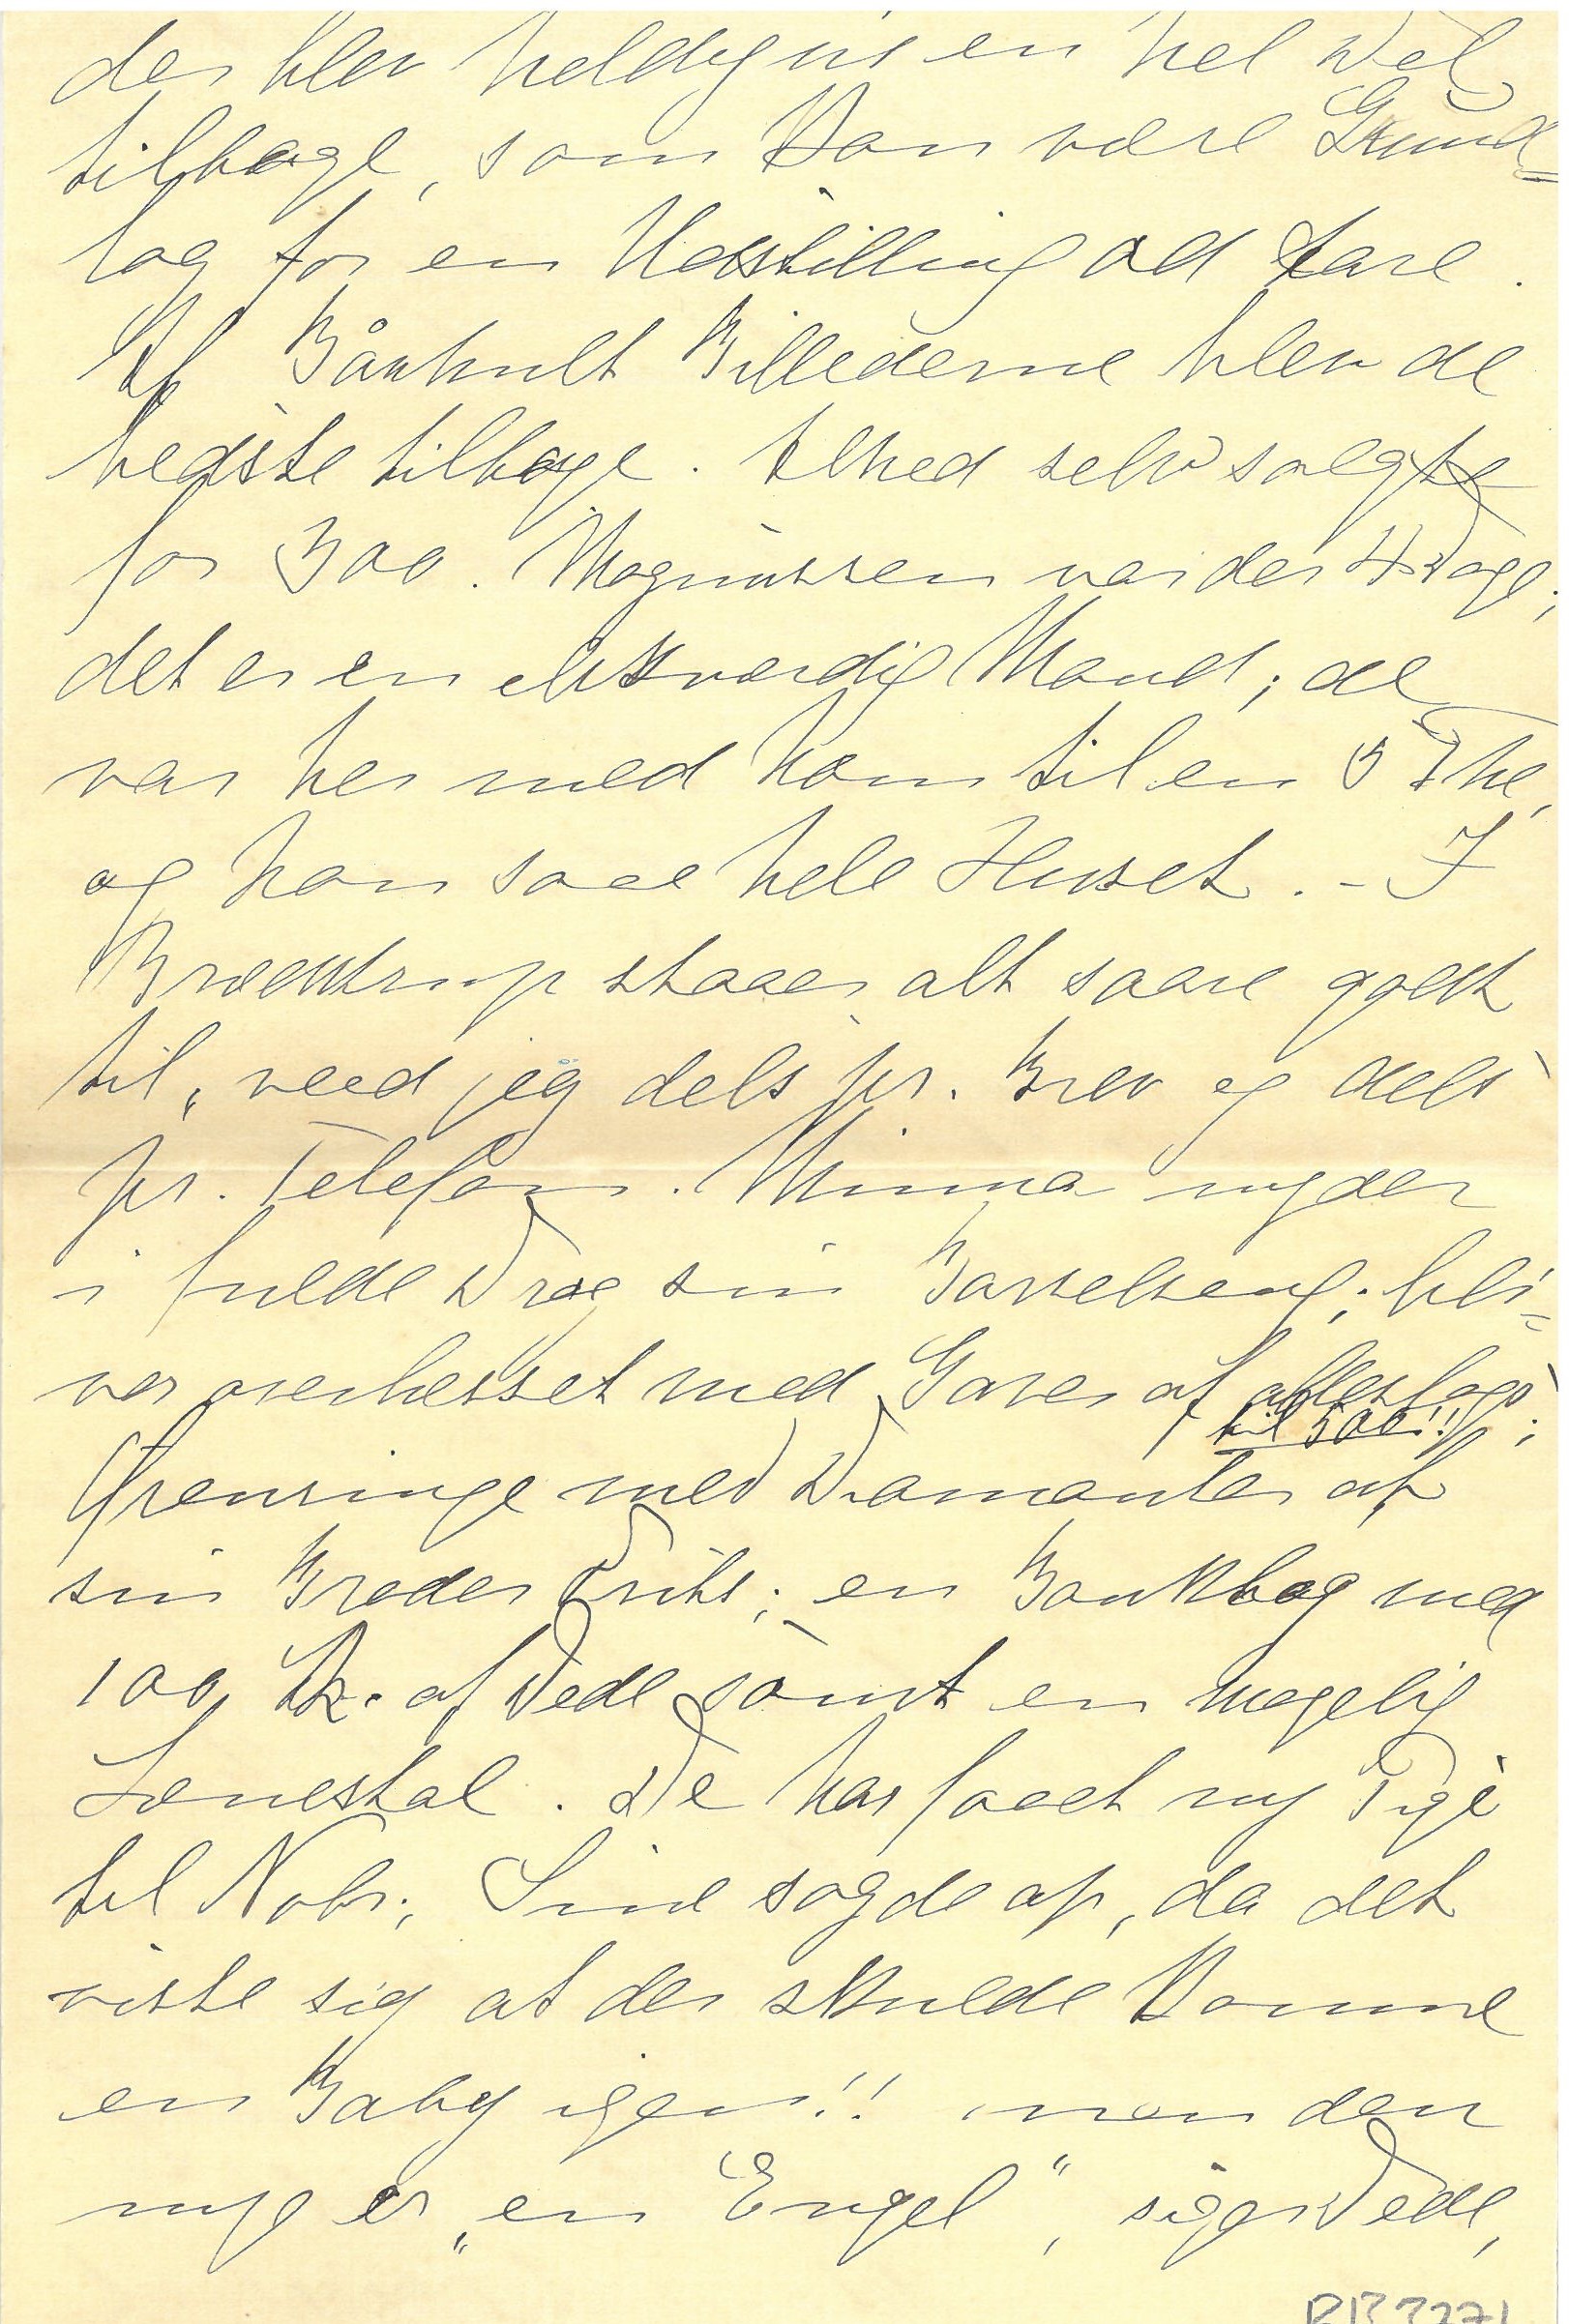 der blev heldigvis en hel Del
tilbage, som kan være Grund-
lag for en Udstilling ad Aare.
Af Båxhult Billederne blev de
bedste tilbage. Alhed selv solgte
for 300. Magnussen var der 4 Dage;
det er en elskværdig Mand; de
var her med ham til en 5 The,
og han saae hele Huset. - I
Brædstrup staaer alt saare godt
til, veed jeg dels pr. Brev og dels
pr. Telefon. Minna nyder
i fulde Drag sin Barselseng; bli=
ver overhesset med Gaver af alleslags;
til 500!!
Ørenringe med Diamanter af
sin Broder Eriks; en Bankbog med
100 Kr. af Dede samt en magelig
Lænestol. De har faaet ny Pige
til Nobr; Sine sagde op, da det
viste sig at der skulde komme
en Baby igen!! men den
nye er "en Engel", siger Dede,
RB 3271